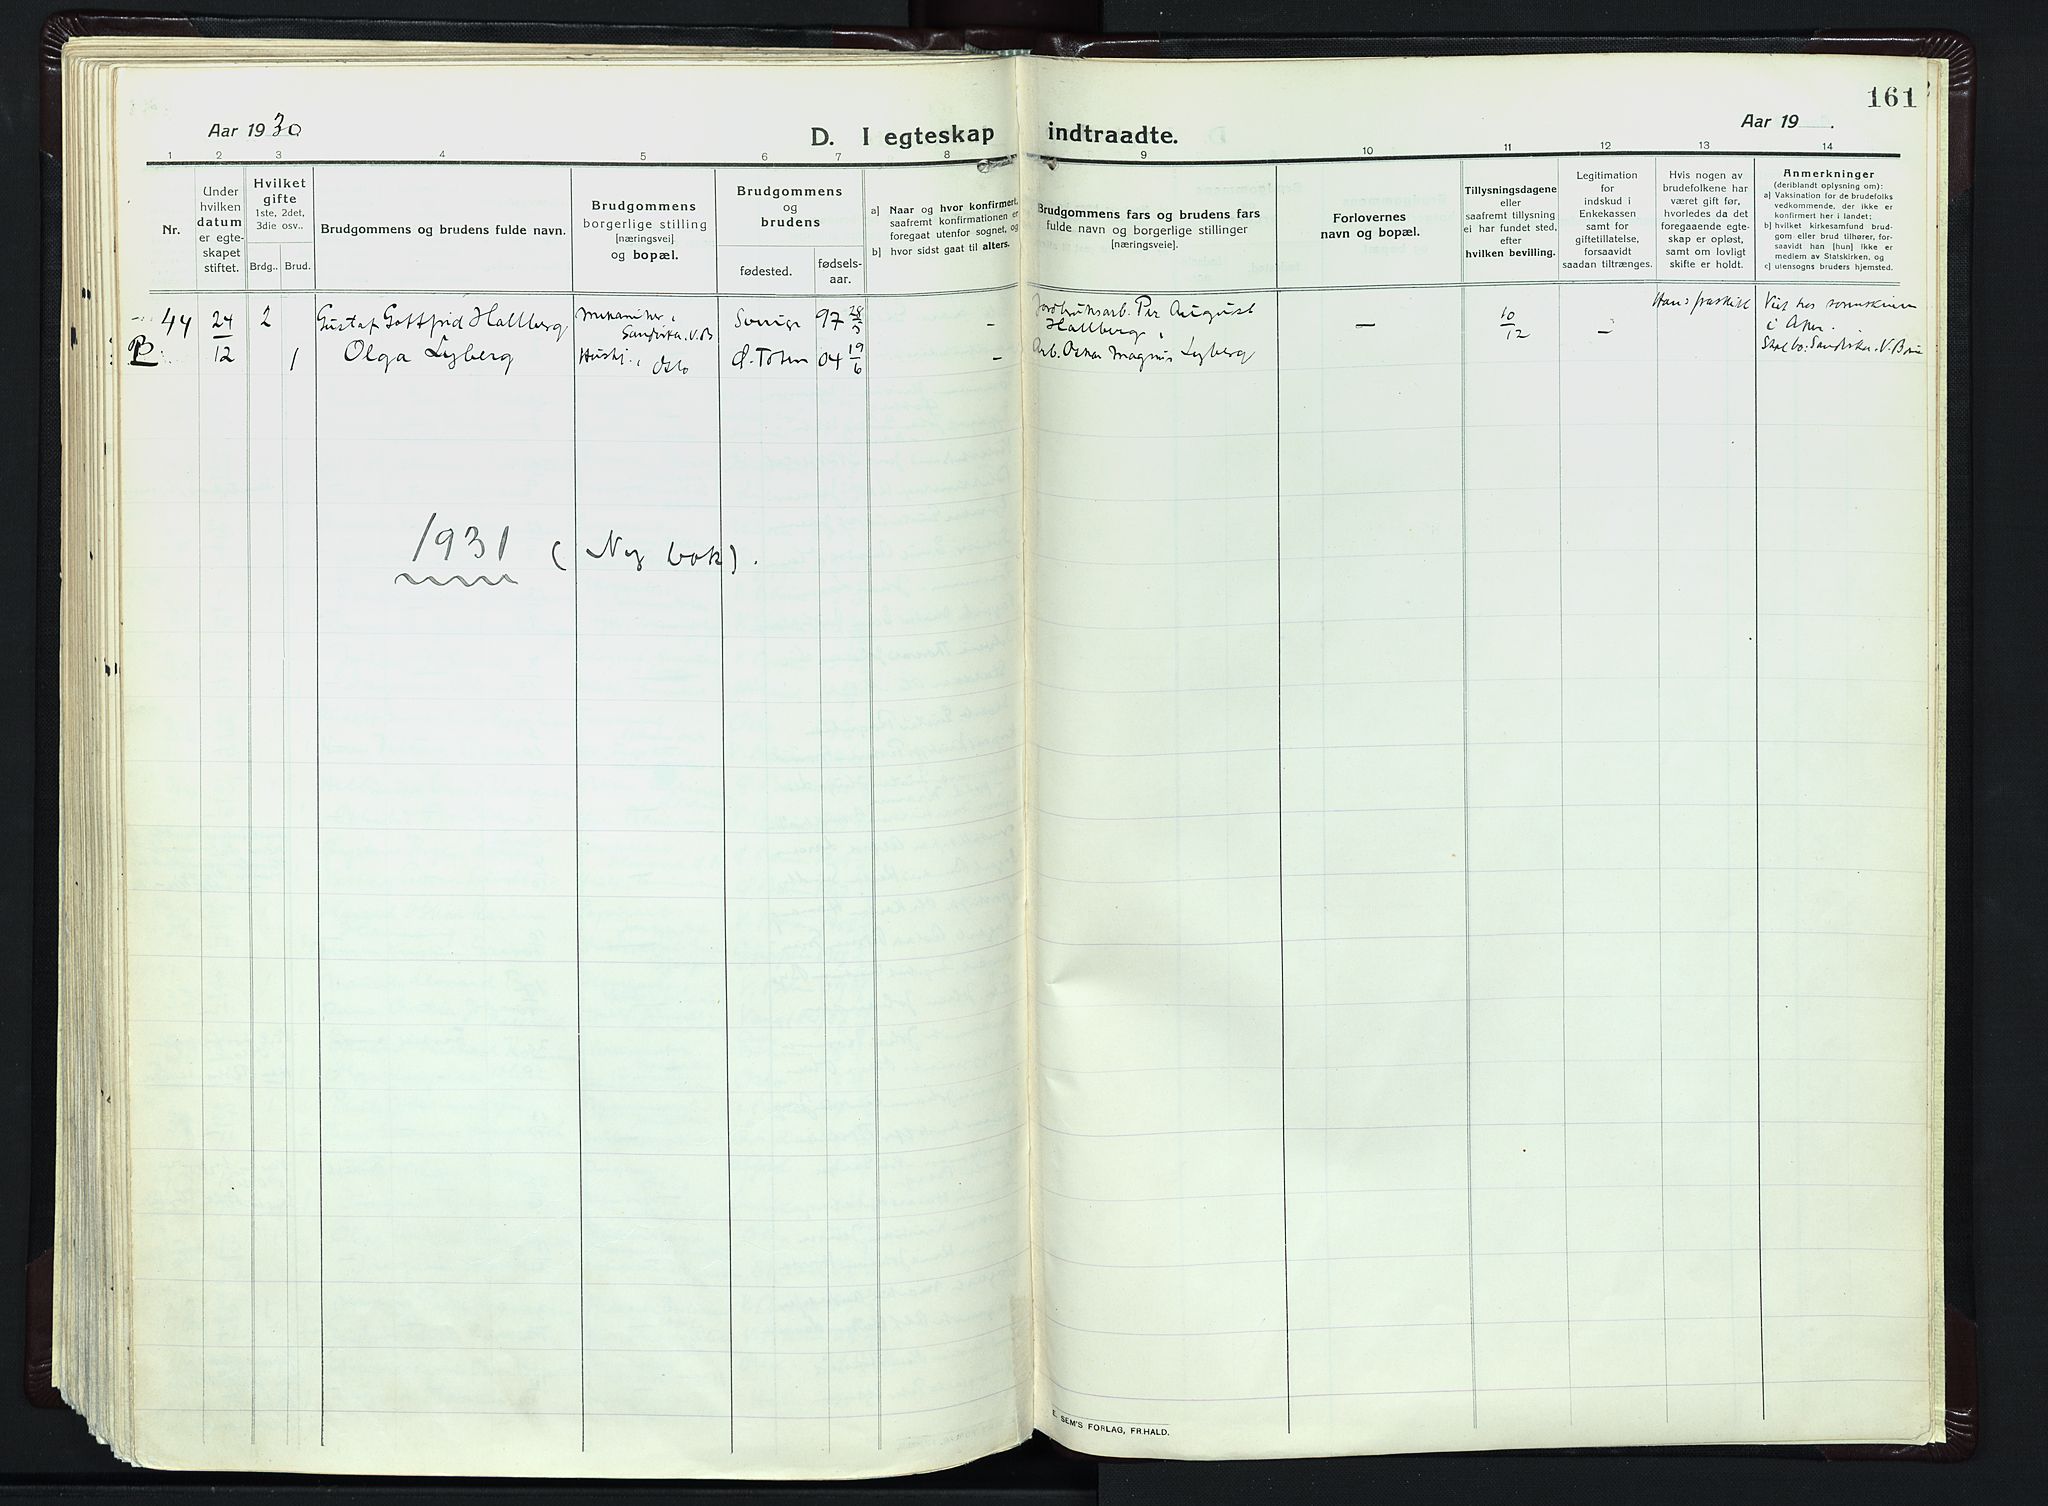 161
Aar 1930
D. I egteskap indtraadte.
Aar 19 .
1 2 3 4 5 6 7 8 9 10 11 12 13 14
Nr.
Under
hvilken
datum
er egte-
skapet
stiftet.
Hvilket
gifte
1ste, 2det,
3die osv..
Brdg.. Brud.
Brudgommens og brudens fulde navn.
Brudgommens
borgerlige stilling
[næringsvei]
og bopæl.
Brudgommens
og
brudens
fødested.
fødsels-
aar.
a] Naar og hvor konfirmert,
saafremt konfirmationen er
foregaat utenfor sognet, og
b] hvor sidst gaat til alters.
Brudgommens fars og brudens fars
fulde navn og borgerlige stillinger
[næringsveie].
Forlovernes
navn og bopæl.
Tillysningsdagene
eller
saafremt tillysning
ei har fundet sted,
efter
hvilken bevilling.
Legitimation
for
indskud i
Enkekassen
samt for
giftetillatelse,
forsaavidt
saadan tiltrænges.
Hvis nogen av
brudefolkene har
været gift før,
hvorledes da det
foregaaende egte-
skap er opløst,
samt om lovligt
skifte er holdt.
Anmerkninger
(deriblandt oplysning om):
a) Vaksination for de brudefolks
vedkommende, der ikke er
konfirmert her i landet;
b) hvilket kirkesamfund brud-
gom eller brud tilhører, for-
saavidt han [hun] ikke er
medlem av Statskirken, og
c) utensogns bruders hjemsted.
44 24/12 2 Gustaf Gottfrid Hallberg Mekaniker, Sandvika. V.B Sverige 97 28/5 – Jordbruksarb. Per August Hallberg, – 10/12 – Hans fraskilt
1 Olga Lyberg Hushj., Oslo Ø. Toten 04 19/6 – Arb. Oskar Magnus Lyberg
Viet hos sorenskriver
i Aker.
Skal bo. Sandvika. V. Bærum
1931 (Ny bok).
E. SEM'S FORLAG, FR.HALD.